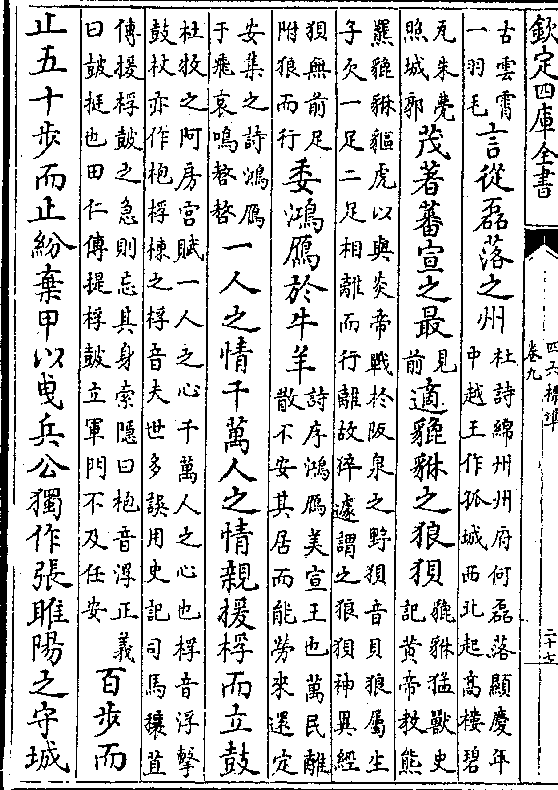 欽定四庫全書
四六標準
卷九
二十七
古雲霄
一羽毛
言從磊落之州
杜詩綿州州府何磊落顯慶年
中越王作孤城西北起高樓碧
瓦朱甍
照城郭
茂著蕃宣之最
見
前
適貔貅之狼狽
貔貅猛獸史
記黄帝教熊
羆貔貅貙虎以與炎帝戰於阪泉之野狽音貝狼屬生
子欠一足二足相離而行離故猝遽謂之狼狽神異經
狽無前足
附狼而行
委鴻鴈於牛羊
詩序鴻鴈美宣王也萬民離
散不安其居而能勞來還定
安集之詩鴻鴈
于飛哀鳴嗸嗸
一人之情千萬人之情親援桴而立鼓
杜牧之阿房宮賦一人之心千萬人之心也桴音浮擊
鼓杖亦作枹桴棟之桴音夫世多誤用史記司馬穰苴
傳援桴鼓之急則忘其身索隱曰枹音浮正義
曰鼓挺也田仁傳提桴鼓立軍門不及任安
百步而
止五十步而止紛棄甲以曳兵公獨作張睢陽之守城